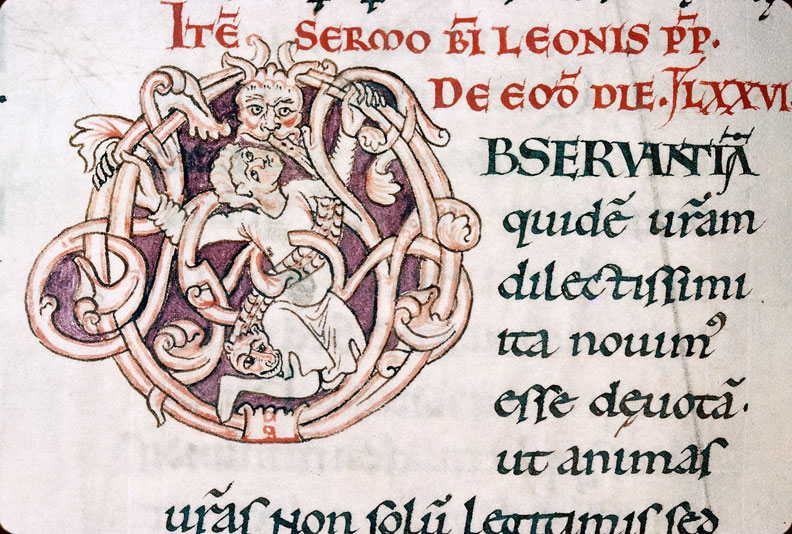 ITE᷉ SERMO B̄I LEONIS P̄P.
DE EOD̄ DIE. LXXVI.
OBSERVANTIĀ
quidē ur̄am
dilectissimi
ita nouim᷒
esse deuotā.
ut animas
ur̄as Non solū legitimis sed